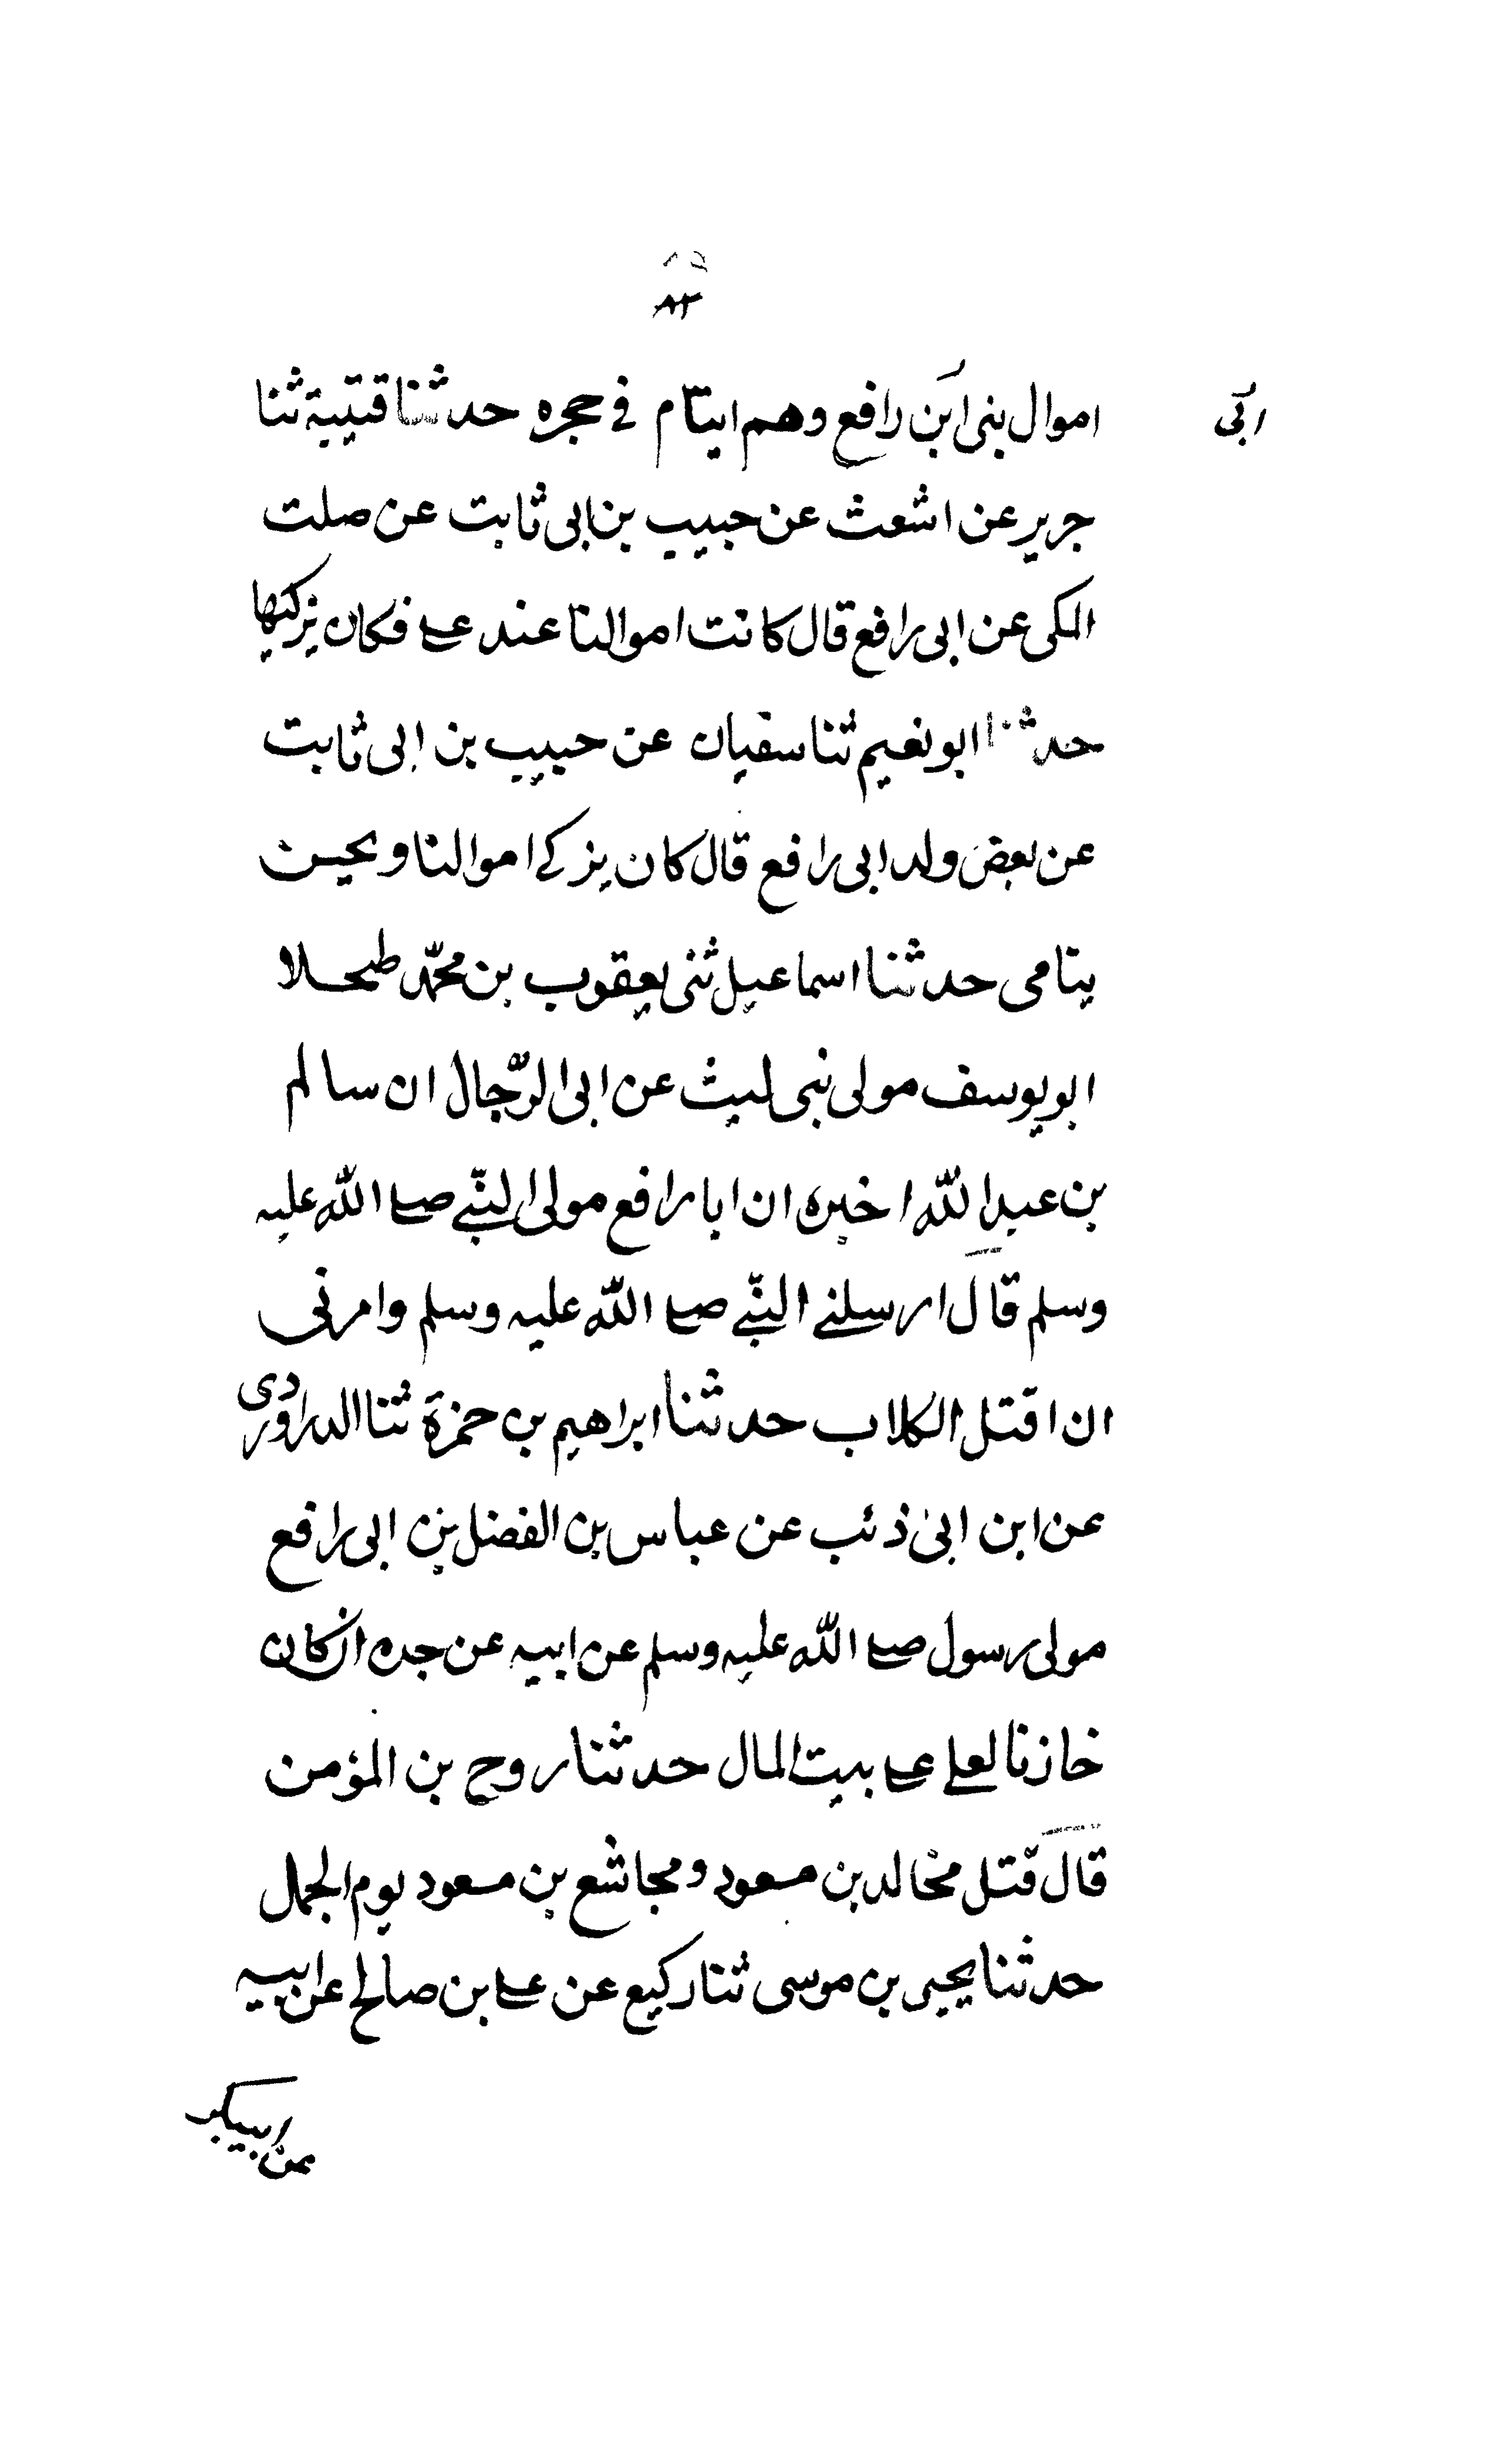 ٨٣
اموال بنى ابن رافع وهم ايتام فى حجره حدثنا قتيبة ثنا
ابى
جرير عن اشعث عن حبيب بن ابى ثابت عن صلت
المكى عن ابى رافع قال كانت اموالنا عند على فكان يزكيها
حدثنا ابو نعيم ثنا سفيان عن حبيب بن ابى ثابت
عن بعض ولد ابى رافع قال كان يزكى اموالنا ونحن
يتامى حدثنا اسماعيل ثنى يعقوب بن محمّد طحلا
ابو يوسف مولى بنى ليث عن ابى الرّجال ان سالم
بن عبد اللّه اخبره ان ابا رافع مولى النّبى صلى اللّه عليه
وسلم قال ارسلنى النّبى صلى اللّه عليه وسلم وامرنى
ان اقتل الكلاب حدثنا ابراهيم بن حمزة ثنا الدراوردى
عن ابن ابى ذئب عن عباس بن الفضل بن ابى رافع
مولى رسول صلى اللّه عليه وسلم عن ابيه عن جده انه كان
خازنا لعلى على بيت المال حدثنا روح بن المؤمن
قال قتل مخالد بن مسعود ومجاشع بن مسعود يوم الجمل
حدثنا يحيى بن موسى ثنا وكيع عن على بن صالح عن ابيه
عن ابى بكر